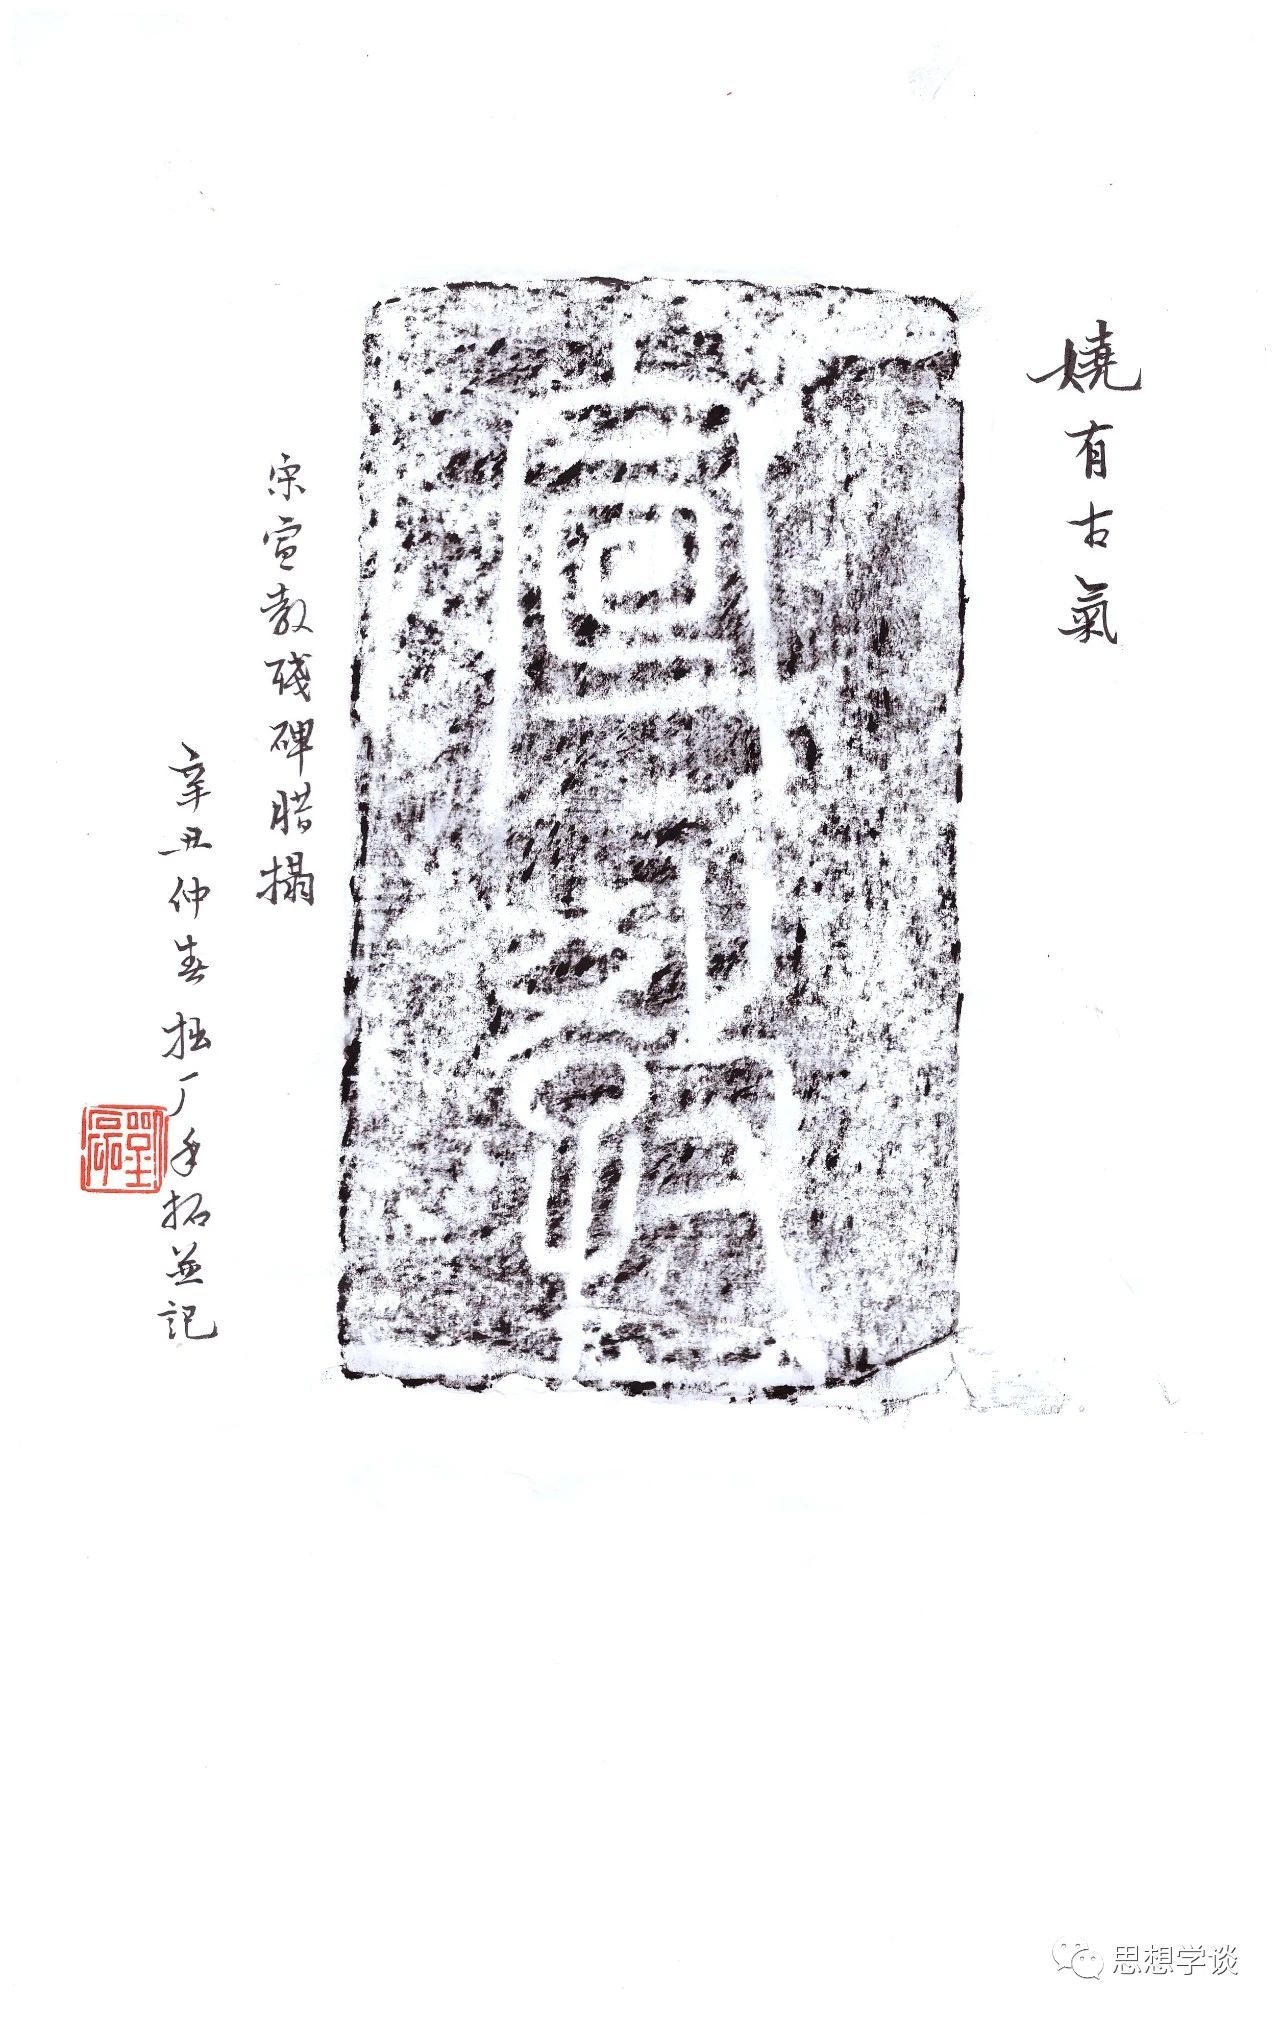 嬈有古氣
宣教
宋宣教殘碑腊搨
辛丑仲春拙厂手拓並記
思想学谈